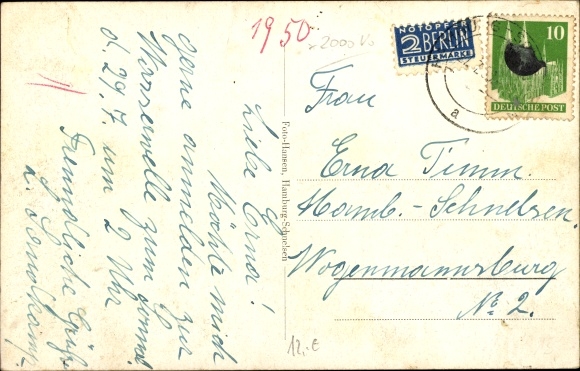 1950
Liebe Erna!
Möchte mich
gerne anmelden zur
Wasserwelle zum Sonnab.
d. 29.7. um 2 Uhr
Freundliche Grüße
Foto-Hansen, Hamburg-Schnelsen
NOTOPFER
2 BERLIN
STEUERMARKE
10
DEUTSCHE POST
a
Frau
Erna Timm.
Hamb.-Schnelsen.
Wogenmannsburg
No 2.
12,-€